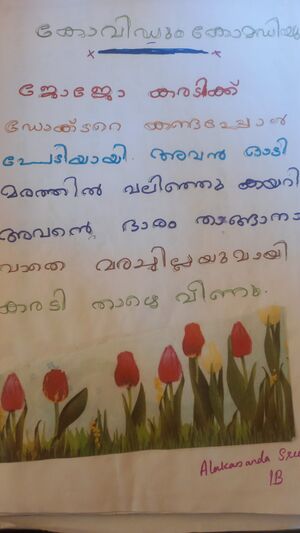 കോവിഡും കോമഡിയും
ജോജോ കരടിക്ക്
ഡോക്ടറെ കണ്ടപ്പോൾ
പേടിയായി. അവൻ ഓടി
മരത്തിൽ വലിഞ്ഞു കയറി
അവന്റെ ഭാരം താങ്ങാനാ
വാതെ മരച്ചില്ലയുമായി
കരടി താഴെ വീണു.
Alakananda
1B